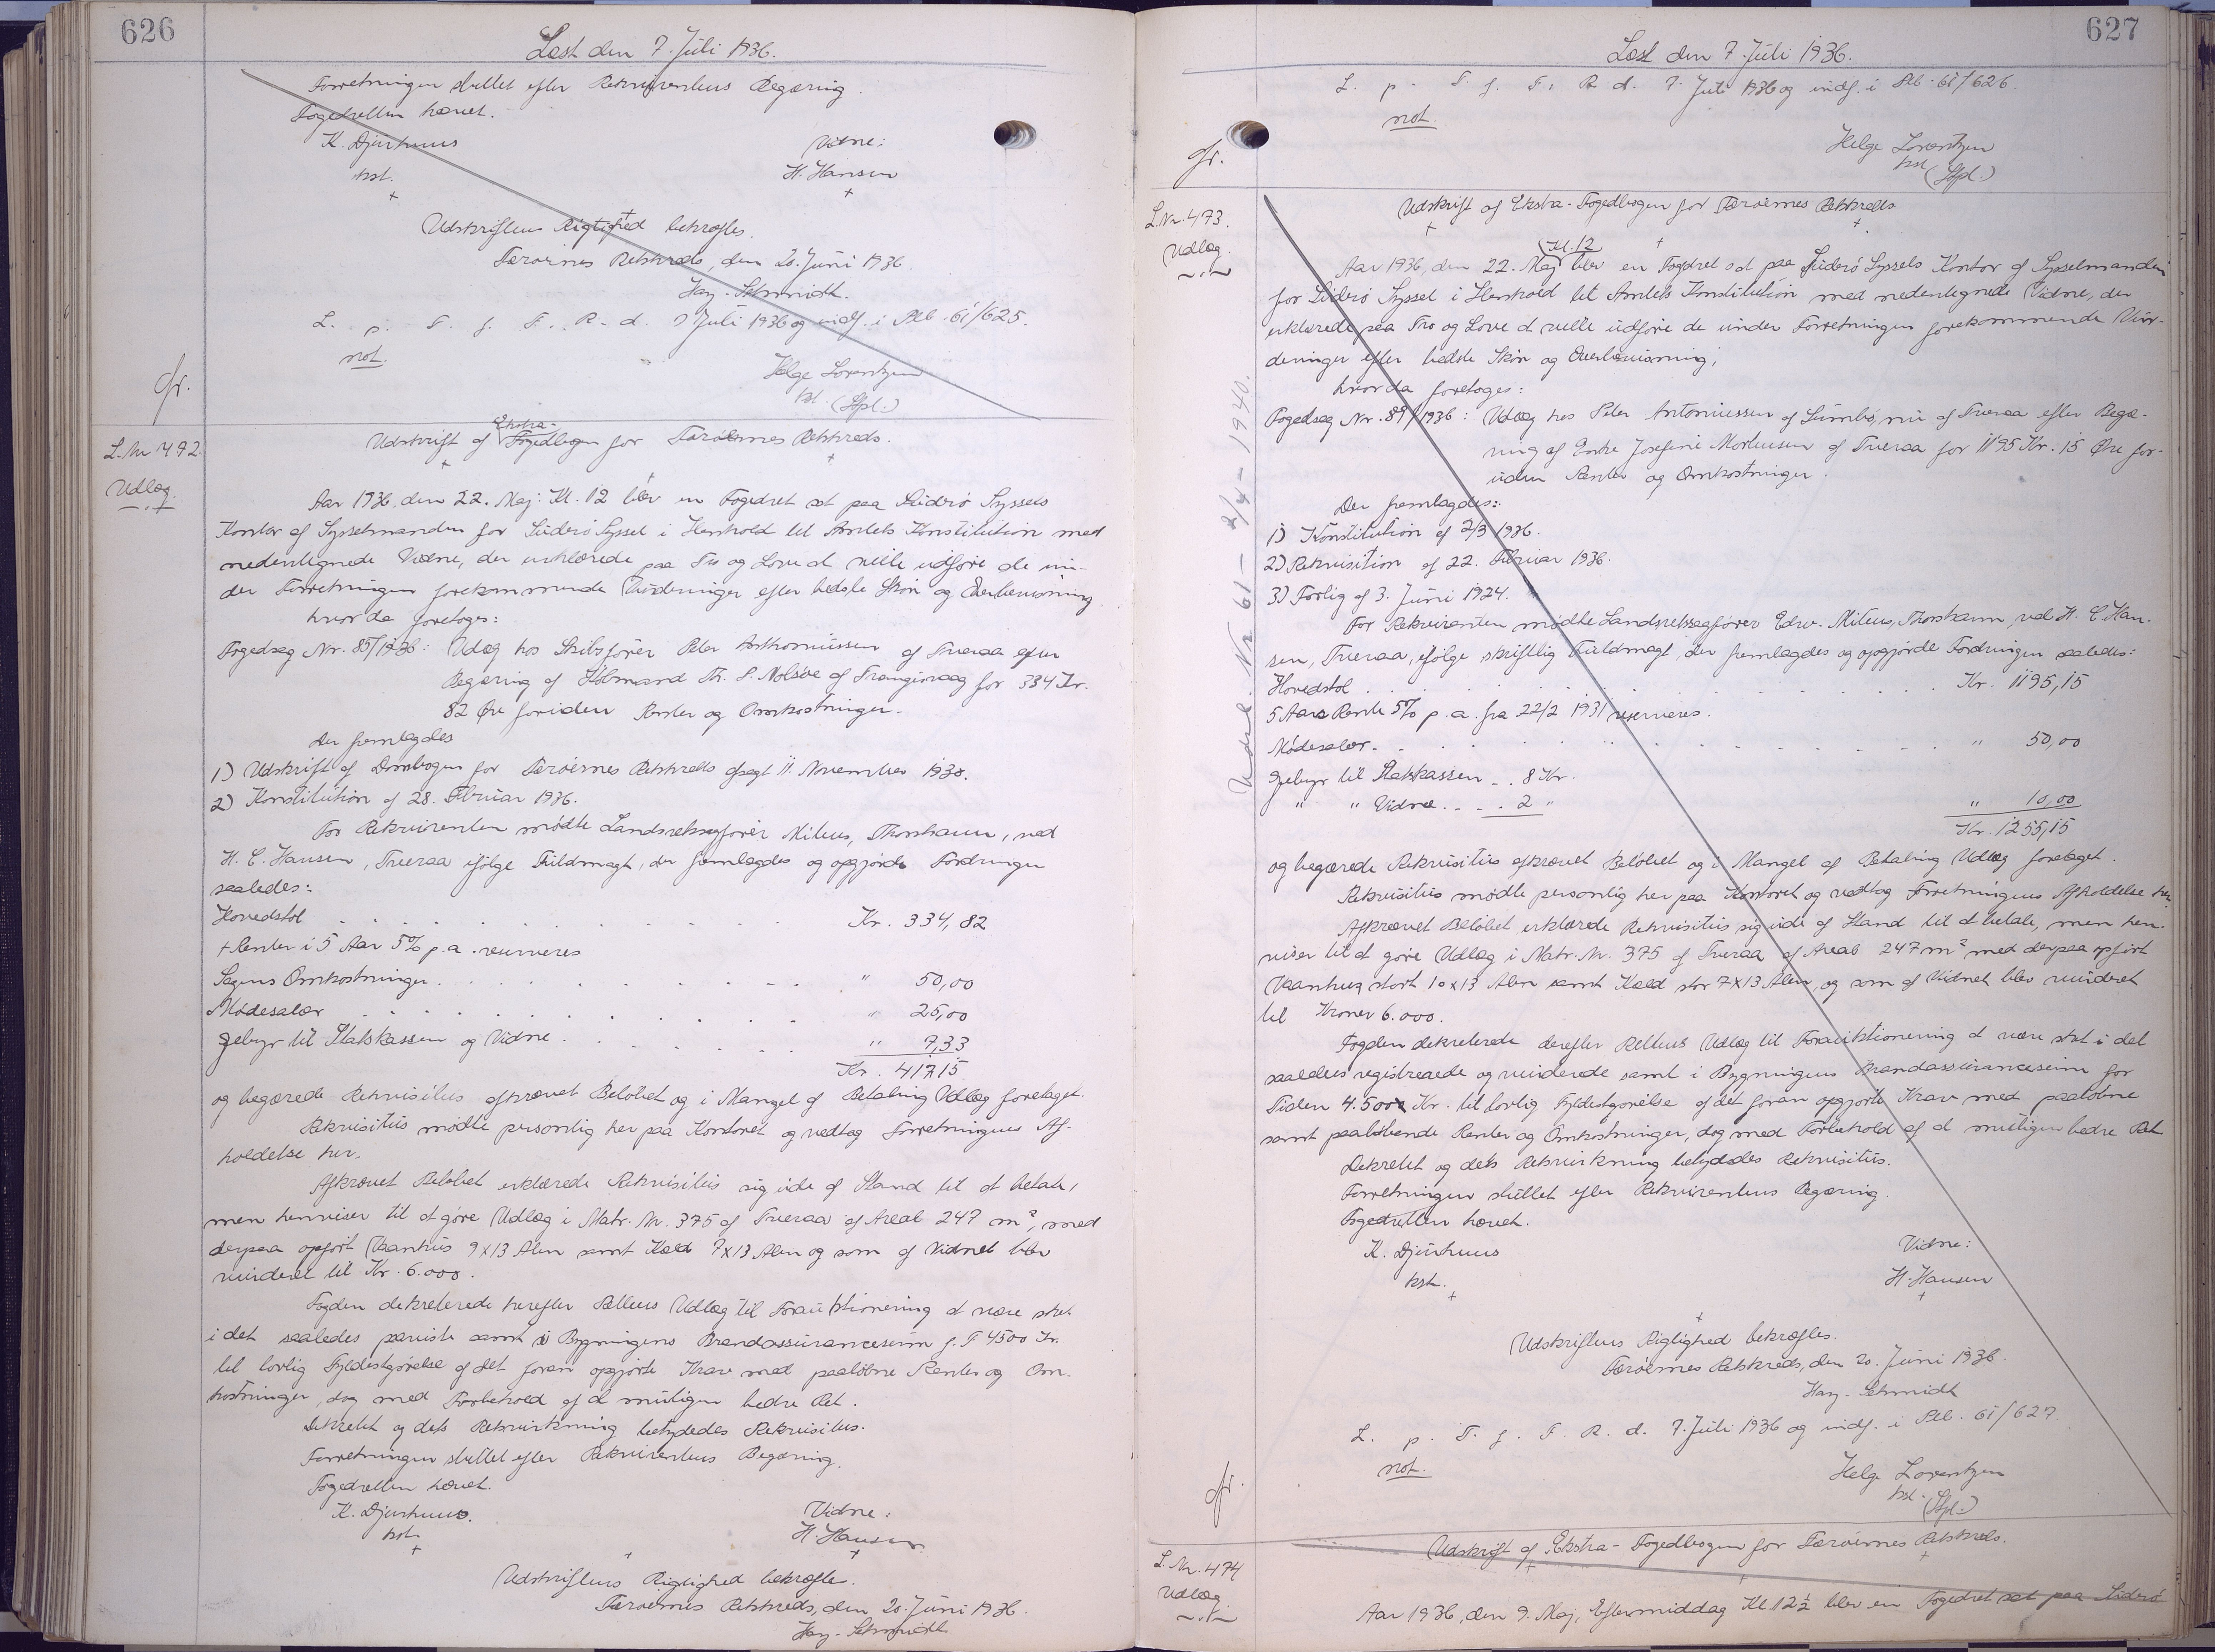 626
Læst den 7. Juli 1936.
Forretningen sluttet efter Rekvirentens Begæring.
Fogedretten hævet.
K. Djurhuus
Vidne:
kst.
H. Hansen
Udskriftens Rigtighed bekræftes.
Færøernes Retskreds, den 20. Juni 1936.
Hay-Schmidt.
L. p. T. f. F. R. d. 7 Juli 1936 og indf. i Pb. 61/625.
not.
Helge Lorentzen
kst. (Stpl.)
Gr.
L. Nr 492.
Udlæg.
Udskrift af Ekstra-Fogedbogen for Færøernes Retskreds.
Aar 1936, den 22. Maj: Kl. 12 blev en Fogedret sat paa Süderø Syssels
Kontor af Sysselmanden for Süderø Syssel i Henhold til Amtets Konstitution med
nedentegnede Vidne, der erklærede paa Tro og Love at ville udføre de un-
der Forretningen forekommende Vurderinger efter bedste Skøn og Overbevisning
hvor da foretoges:
Fogedsag Nr. 85/1936: Udlæg hos Skibsfører Peter Anthoniussen af Tveraa efter
Begæring af Købmand Th. S. Nolsøe af Trangisvaag for 334 Kr.
82 Øre foruden Renter og Omkostninger.
Der fremlagdes
1) Udskrift af Dombogen for Færøernes Retskreds afsagt 11. November 1930.
2) Konstitution af 28. Februar 1936.
For Rekvirenten mødte Landsretssagfører Mitens, Thorshavn, ved
H. C. Hansen, Tveraa ifølge Fuldmagt, der fremlagdes og opgjorde Fordringen
saaledes:
Hovedstol . . . . . . Kr. 334,82
+ Renter i 5 Aar 5% p.a. reserveres
Sagens Omkostninger . . . . . . " 50,00
Mødesalær . . . . . . " 25,00
Gebyr til Statskassen og Vidne . . . . . . " 7,33
Kr. 417,15
og begærede Rekvisitus afkrævet Beløbet og i Mangel af Betaling Udlæg foretaget.
Rekvisitus mødte personlig her paa Kontoret og vedtog Forretningens Af-
holdelse her.
Afkrævet Beløbet erklærede Rekvisitus sig ude af Stand til at betale,
men henviser til at gøre Udlæg i Matr. Nr. 375 af Tveraa af Areal 247 m², med
derpaa opført Vaanhus 9x13 Alen samt Kæld 7x13 Alen og som af Vidnet blev
vurderet til Kr. 6.000.
Fogden dekreterede herefter Rettens Udlæg til Forauktionering at være sket
i det saaledes paaviste samt i Bygningens Brandassurancesum f. T 4500 Kr.
til lovlig Fyldestgørelse af det foran opgjorte Krav med paaløbne Renter og Om-
kostninger, dog med Forbehold af at muligen bedre Ret.
Dekretet og dets Retsvirkning betydedes Rekvisitus.
Forretningen sluttet efter Rekvirentens Begæring.
Fogedretten hævet.
K. Djurhuus.
Vidne:
kst.
H. Hansen
Udskriftens Rigtighed bekræftes.
Færøernes Retskreds, den 20. Juni 1936.
Hay-Schmidt
627
Læst den 7. Juli 1936.
L. p. T. f. F. R. d. 7. Juli 1936 og indf. i Pb. 61/626.
not.
Helge Lorentzen
kst (Stpl.)
Gr.
L. Nr. 473.
Udlæg.
Udskrift af Ekstra-Fogedbogen for Færøernes Retskreds
Aar 1936, den 22. Maj Kl. 12 blev en Fogedret sat paa Süderø Syssels Kontor af Sysselmanden
for Süderø Syssel i Henhold til Amtets Konstitution med nedentegnede Vidne, der
erklærede paa Tro og Love at ville udføre de under Forretningen forekommende Vur-
deringer efter bedste Skøn og Overbevisning;
hvor da foretoges:
Fogedsag Nr. 89/1936: Udlæg hos Peter Antoniussen af Sumbø, nu af Tveraa efter Begæ-
ring af Enke Josefine Mortensen af Tveraa for 1195 Kr. 15 Øre for-
uden Renter og Omkostninger.
Der fremlagdes:
1) Konstitution af 2/3 1936.
2) Rekvisition af 22. Februar 1936.
3) Forlig af 3. Juni 1924.
For Rekvirenten mødte Landsretssagfører Edw. Mitens, Thorshavn, ved H. C. Han-
sen, Tveraa, ifølge skriftlig Fuldmagt, der fremlagdes og opgjorde Fordringen saaledes:
Hovedstol . . . . . . Kr. 1195,15
5 Aars Rente 5% p. a. fra 22/2 1931 reserveres.
Mødesalær . . . . . . " 50,00
Gebyr til Statskassen . . 8 Kr.
" " Vidne . . . . 2 " " 10,00
Kr. 1255,15
og begærede Rekvisitus afkrævet Beløbet og i Mangel af Betaling Udlæg foretaget.
Rekvisitus mødte personlig her paa Kontoret og vedtog Forretningens Afholdelse her.
Afkrævet Beløbet erklærede Rekvisitus sig ude af Stand til at betale, men hen-
viser til at gøre Udlæg i Matr. Nr. 375 af Tveraa af Areal 247 m² med derpaa opført
Vaanhus stort 10x13 Alen samt Kæld stor 7x13 Alen, og som af Vidnet blev vurderet
til Kroner 6.000.
Fogden dekreterede derefter Rettens Udlæg til Forauktionering at være sket i det
saaledes registrerede og vurderede samt i Bygningens Brandassurancesum for
Tiden 4.500 Kr. til lovlig Fyldestgørelse af det foran opgjorte Krav med paaløbne
samt paaløbende Renter og Omkostninger, dog med Forbehold af at muligen bedre Ret
Dekretet og dets Retsvirkning betydedes Rekvisitus.
Forretningen sluttet efter Rekvirentens Begæring.
Fogedretten hævet.
K. Djurhuus
Vidne:
kst.
H. Hansen
Udskriftens Rigtighed bekræftes.
Færøernes Retskreds, den 20. Juni 1936.
Hay-Schmidt
L. p. T. f. F. R. d. 7. Juli 1936 og indf. i Pb. 61/627.
not.
Helge Lorentzen
kst. (Stpl.)
Gr.
L. Nr. 474
Udlæg.
Udskrift af Ekstra-Fogedbogen for Færøernes Retskreds.
Aar 1936, den 9. Maj, Eftermiddag Kl 12½ blev en Fogedret sat paa Süderø
61 - 2/4 - 1940.